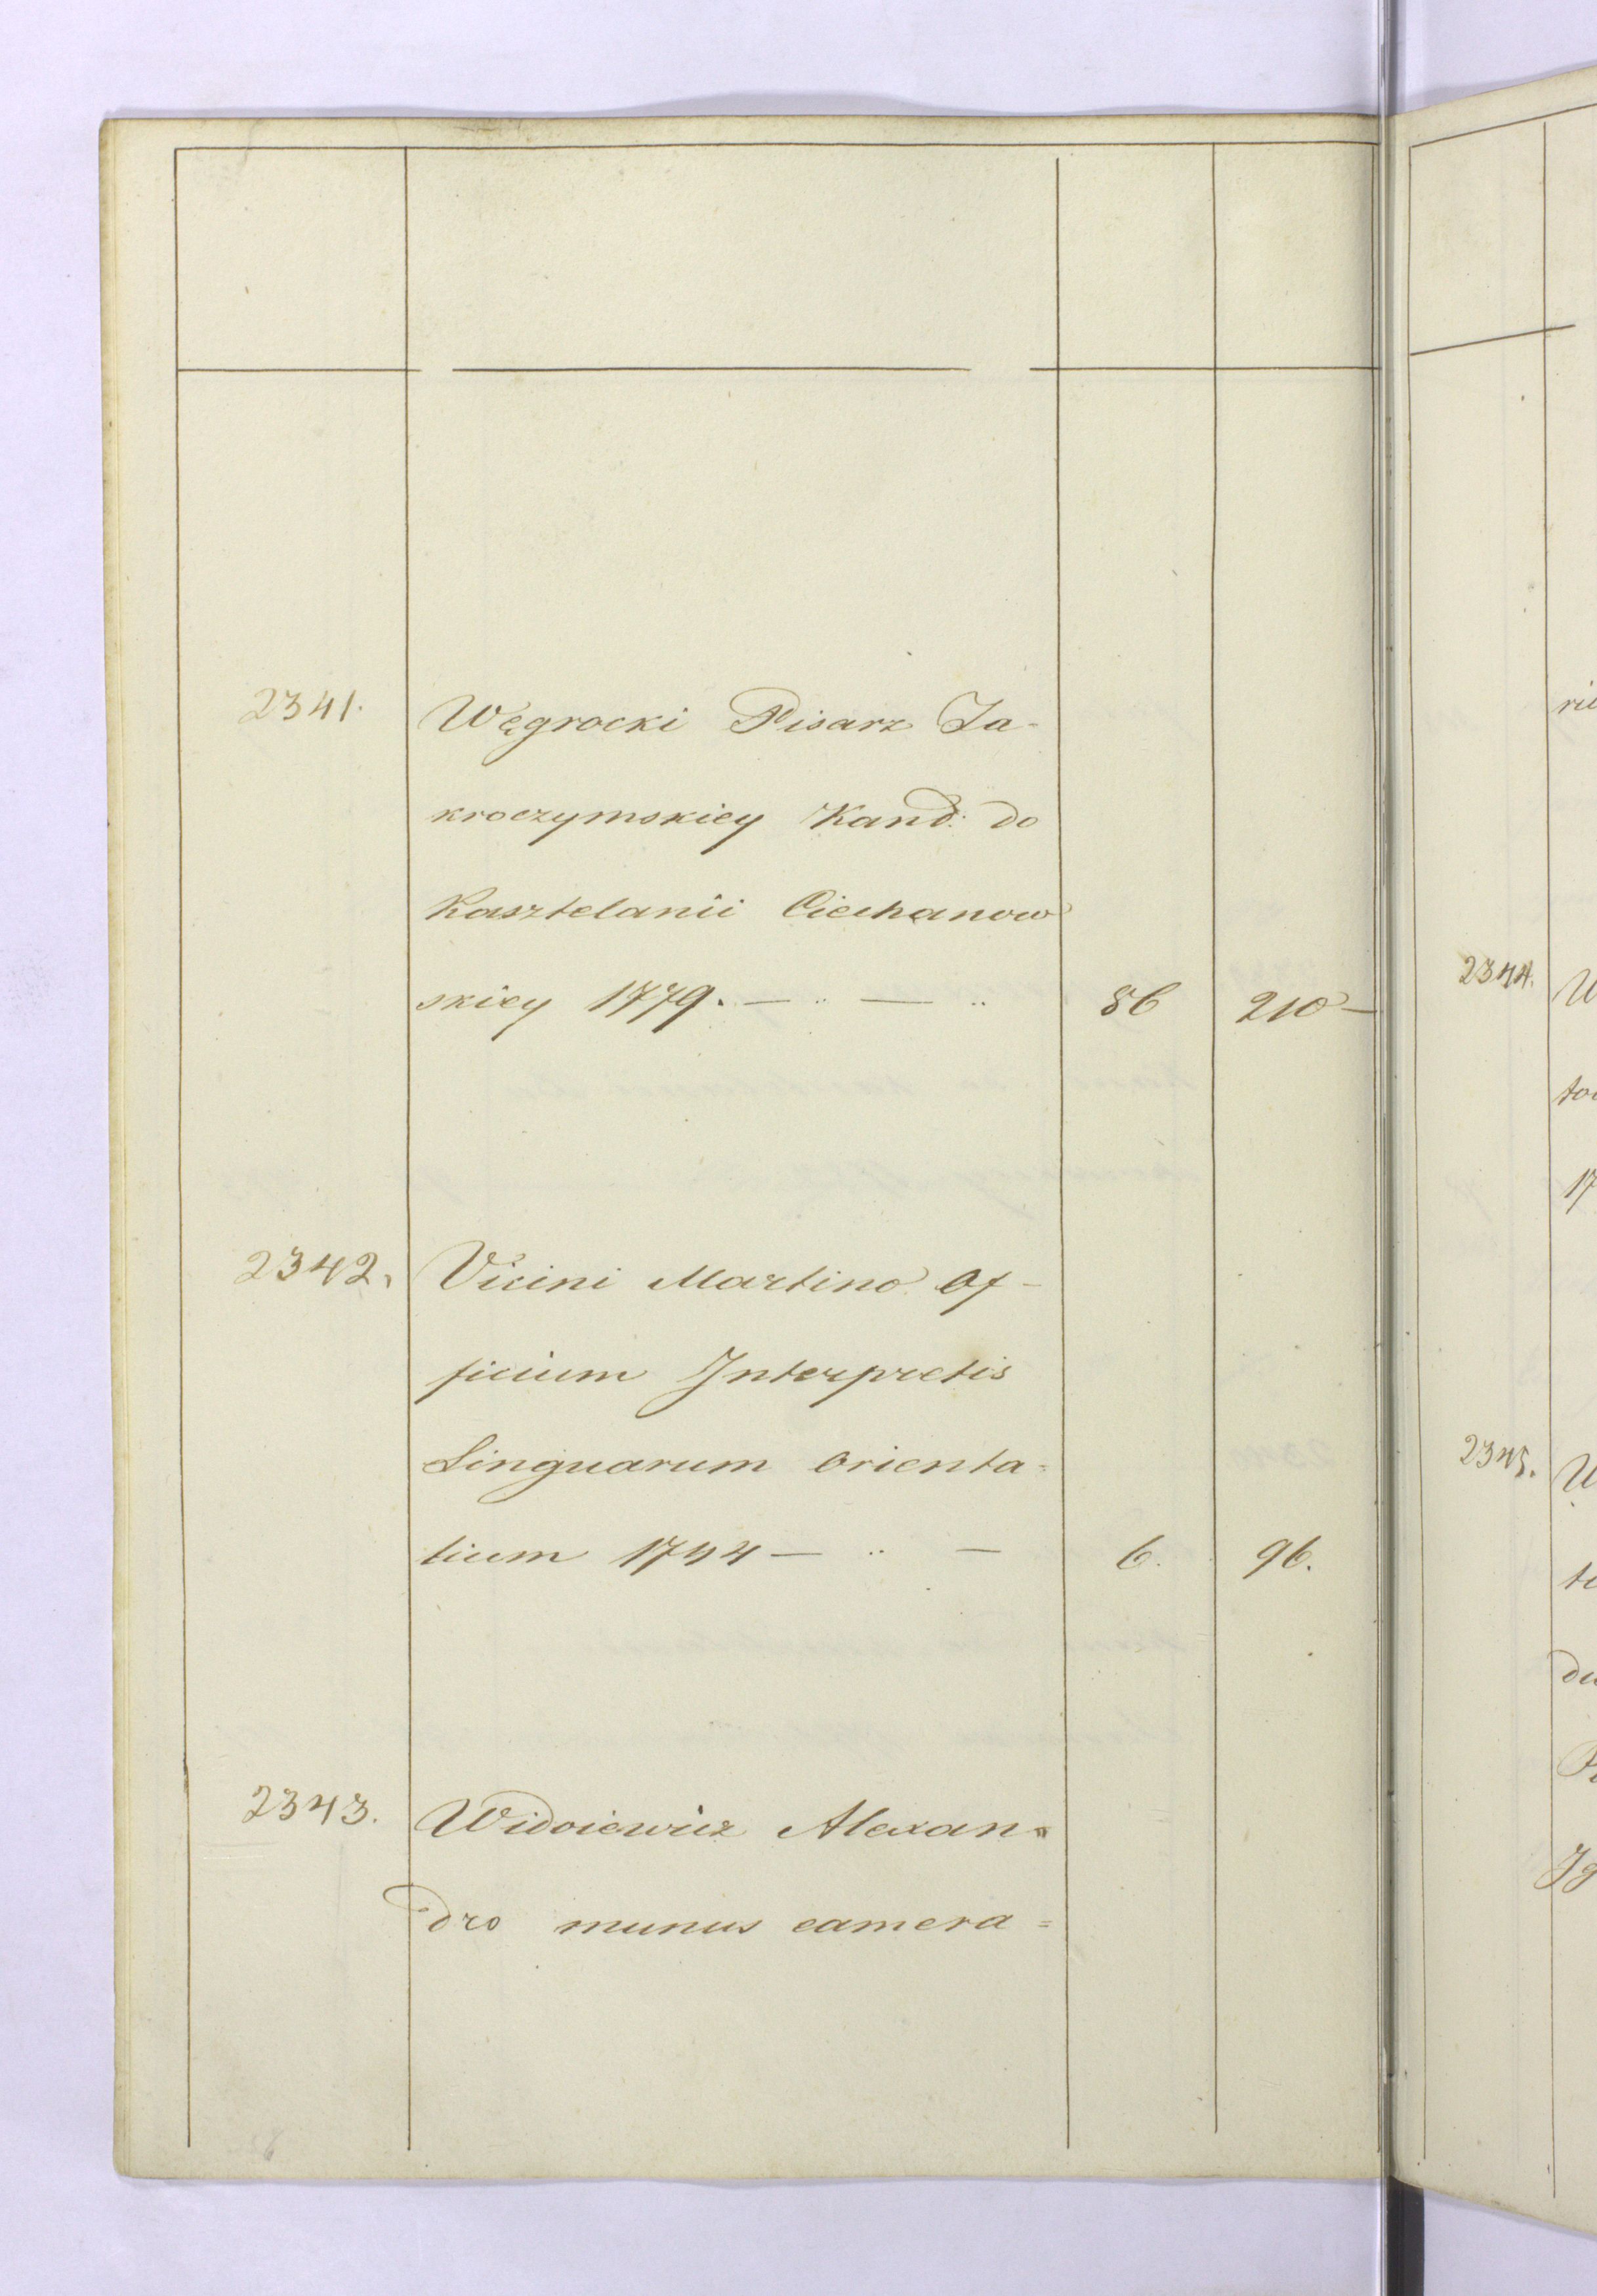 2341. Węgrocki Pisarz Za-
kroczymskiey Kand: do
Kasztelanii Ciechanow
skiey 1779. — .. — .. 86 210 —
2342. Vicini Martino Of-
ficium Interpretis
Linguarum Orienta=
lium 1744 — .. — 6. 96.
2343. Widoiewicz Alexan=
dro munus camera=
2344.
2345.